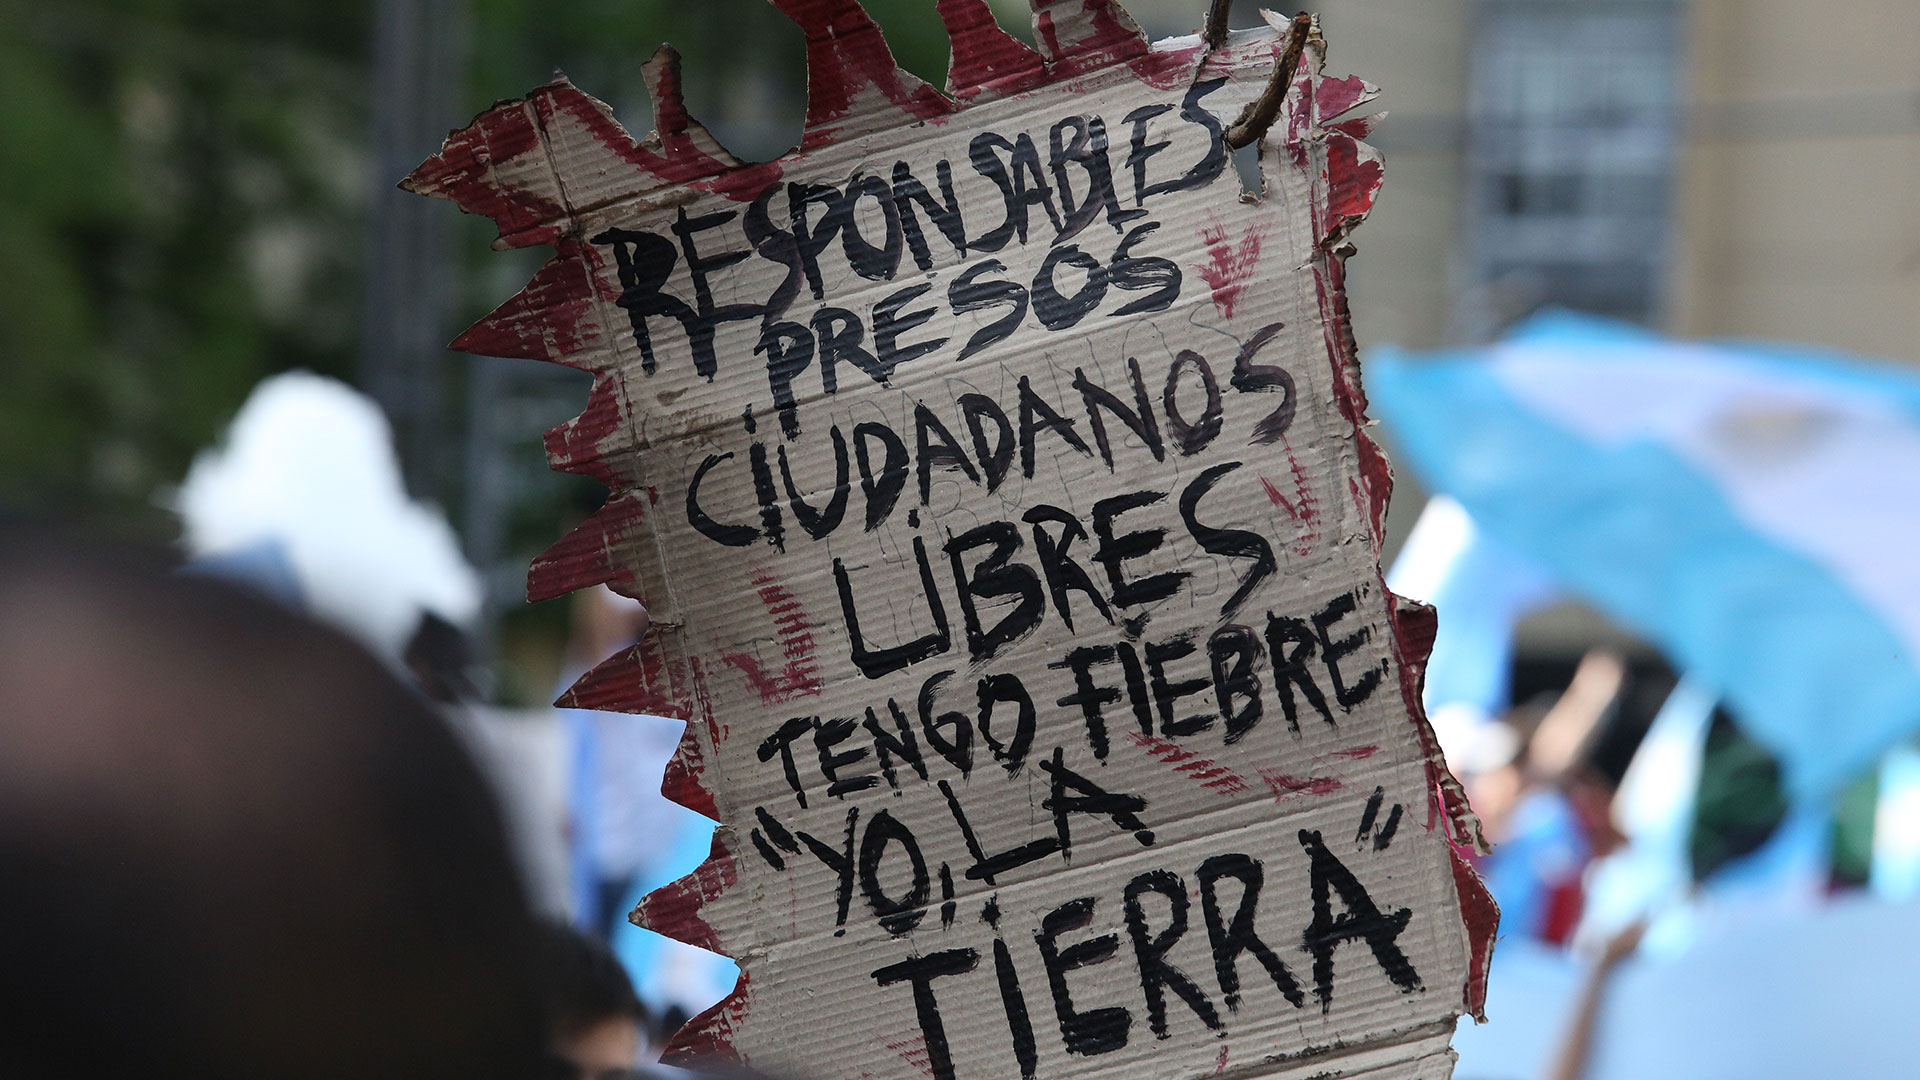 RESPONSABLES
PRESOS
CIUDADANOS
LIBRES
TENGO FIEBRE"
"YO, LA
TIERRA"